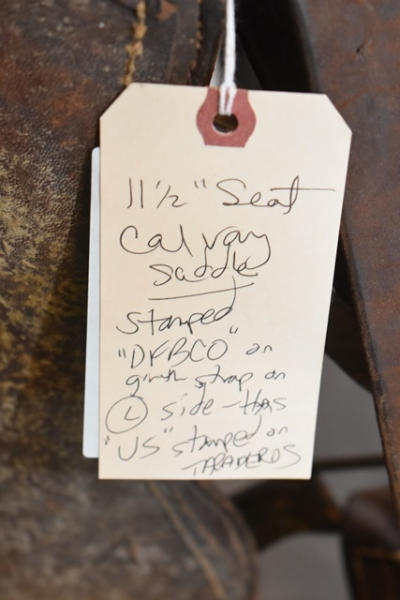 11 1/2" Seat
Calvary
Saddle
Stamped
"DFBCO" on
girth strap on
(L) side - Has
"US" stamped on
TARADEROS